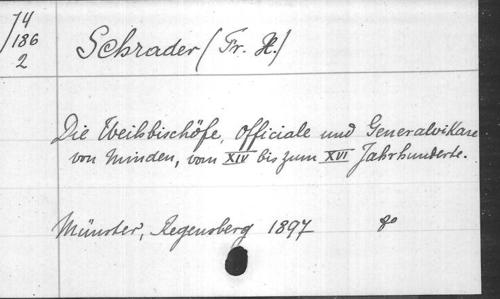 74
186
2
Schrader (Fr. X.)
Die Weihbischöfe, Officiale und Generalvikare
von Minden, vom XIV bis zum XVI Jahrhunderte.
Münster, Regensberg 1897 8º